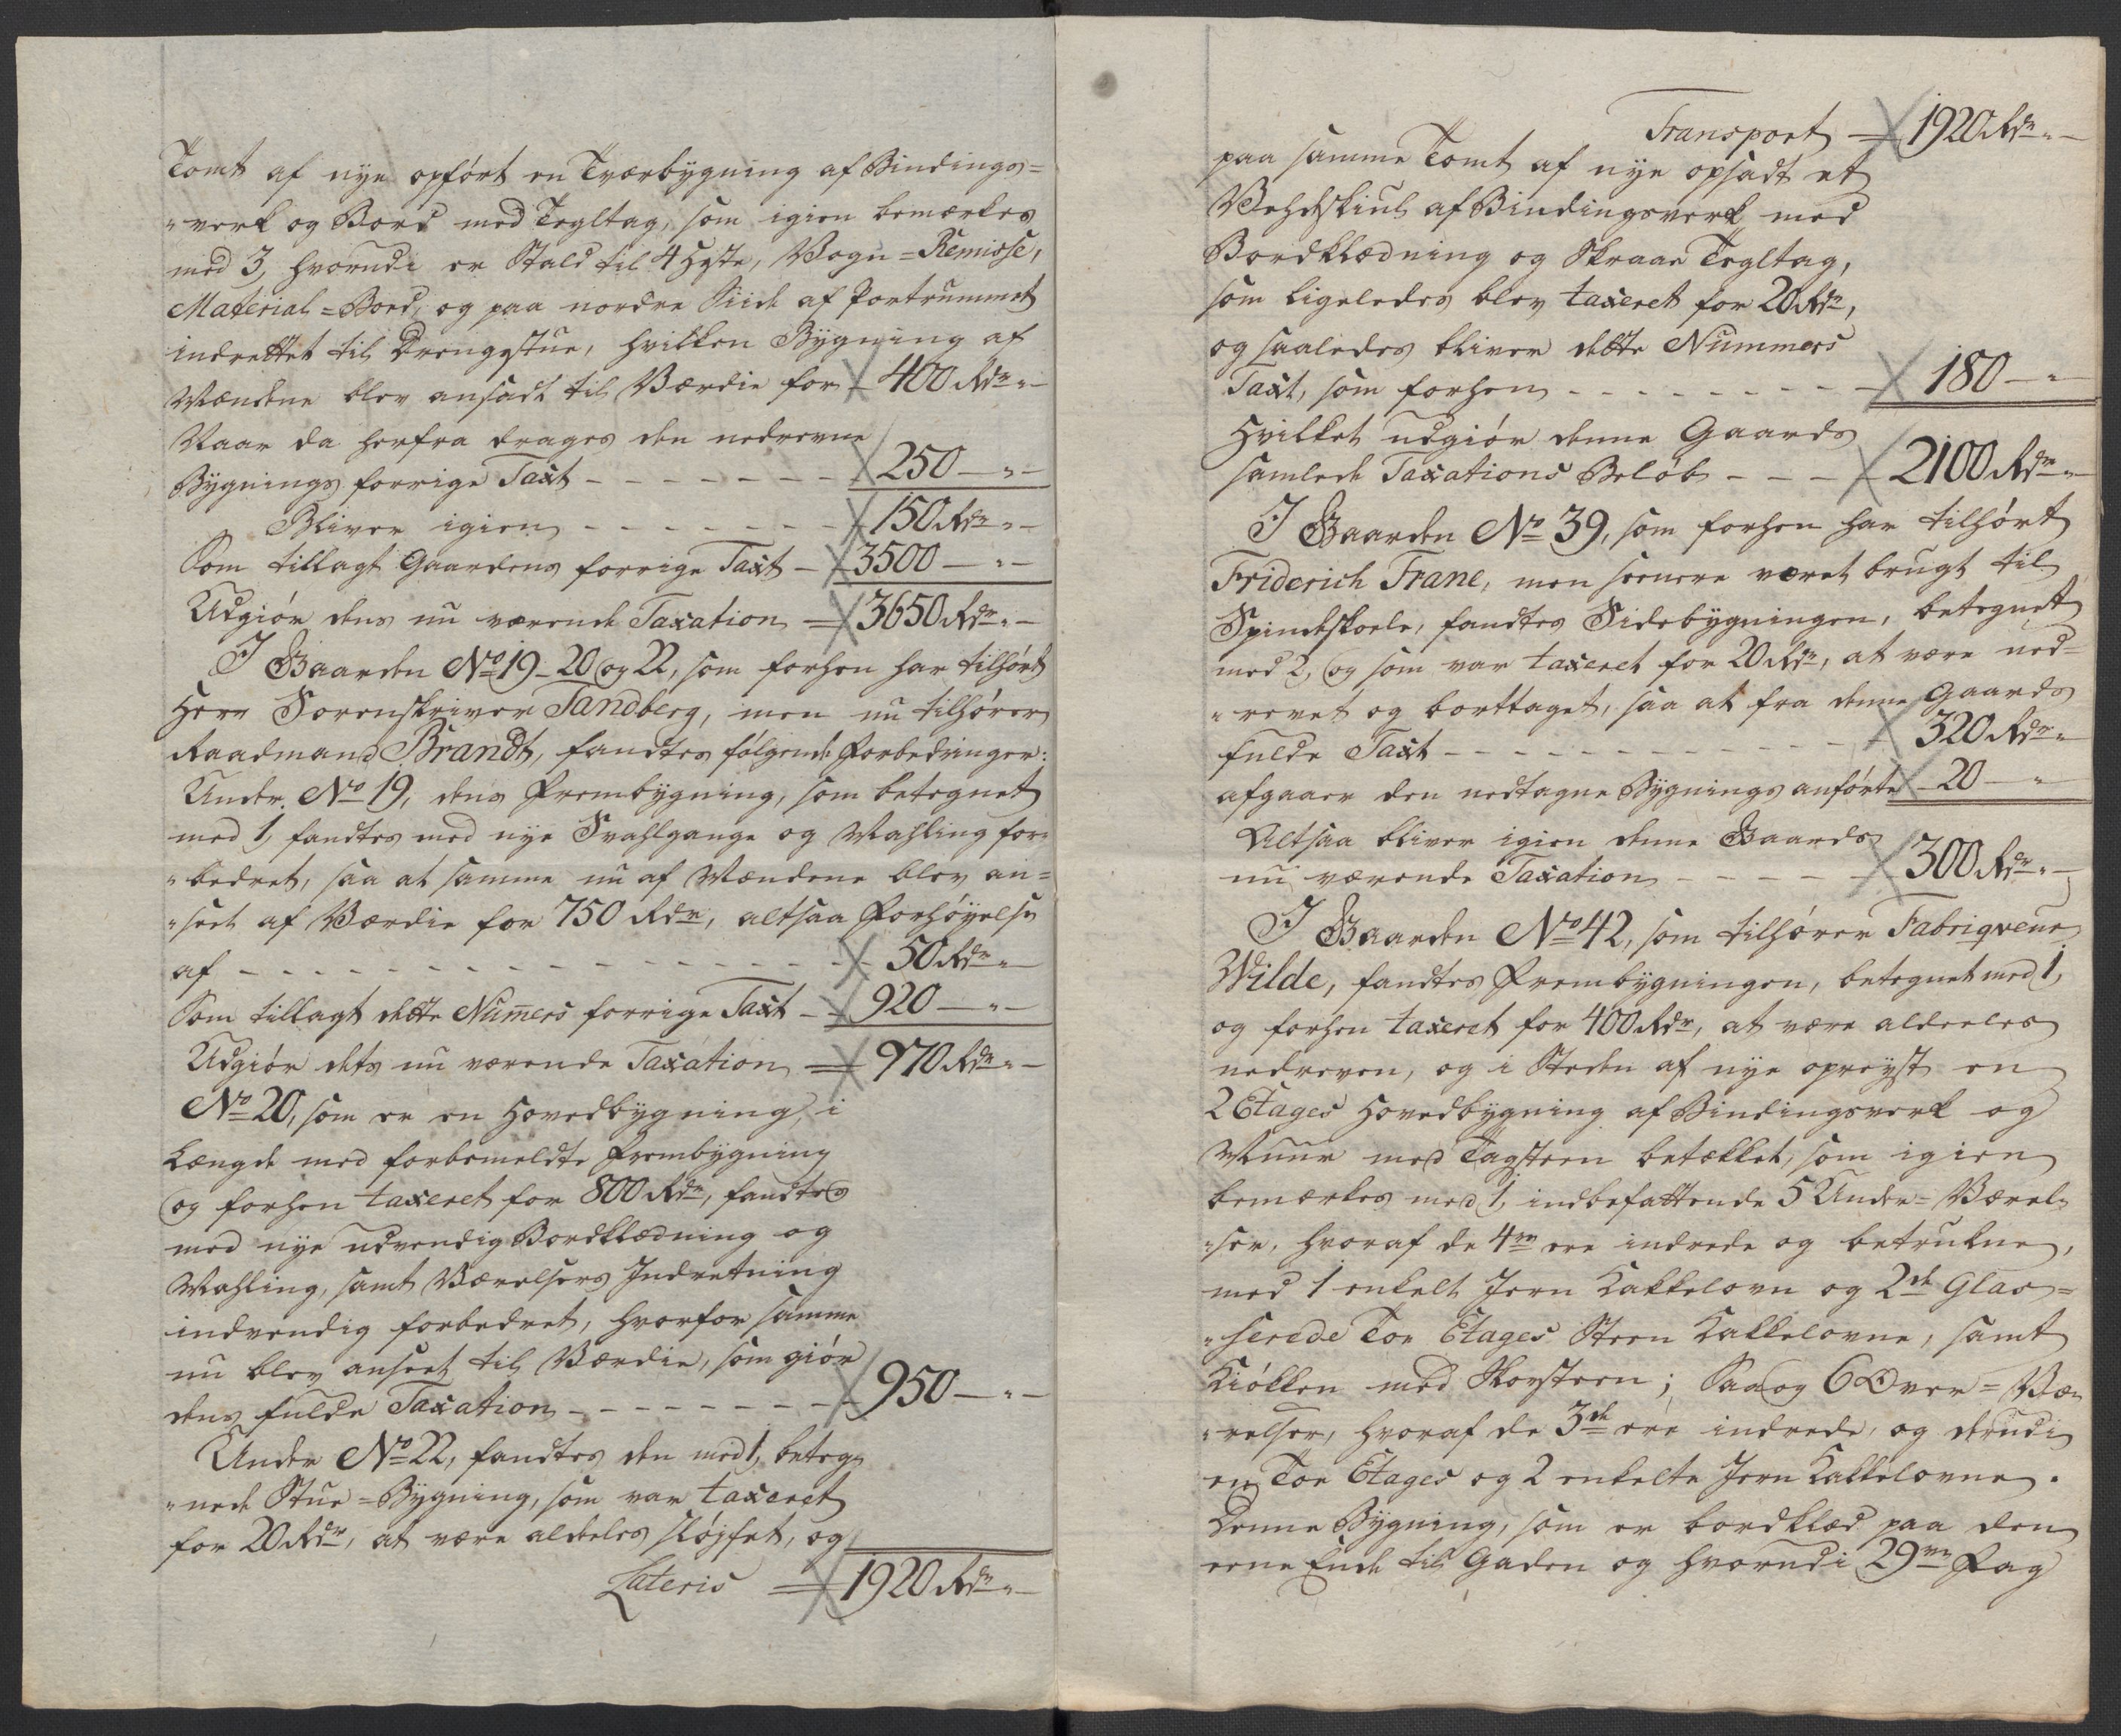 Tomt af nye opført en Tværbygning af Bindings=
"verk og Bord med Tegltag, som igien bemærkes
med 3, hvorudi er Stald til 4 Hæste, Vogn=Remisse,
Material=Bord, og paa nordre Siide af Portrummet
indrettet til Drengestue, hvilken Bygning af
Mændene blev ansadt til Værdie for 400 Rdr " –
Naar da herfra drages den nedrevne
Bygnings forrige Taxt - - - - - - - 250 – " –
Bliver igien - - - - - - - 150 Rdr " –
Som tillagt Gaardens forrige Taxt – 3500 – " –
Udgiør dens nu værende Taxation = 3650 Rdr " –
I Gaarden No 19 - 20 og 22, som forhen har tilhørt
Herr Sorenskriver Sandberg, men nu tilhører
Raadmand Brandt, fandtes følgende Forbedringer:
Under No 19, dens Frembygning, som betegnet
med 1, fandtes med nye Svahlgange og Mahling for=
"bedret, saa at samme nu af Mændene blev an=
"seet af Værdie for 750 Rdr, altsaa Forhøyelse
af - - - - - - - - - - - - - 50 Rdr " –
Som tillagt dette Numers forrige Taxt - 920 – " –
Udgiør dets nu værende Taxation = 970 Rdr " –
No 20, som er en Hovedbygning, i
Længde med forbemeldte Frembygning
og forhen taxeret for 800 Rdr, fandtes
med nye udvendig Bordklædning og
Mahling, samt Værelsers Indretning
indvendig forbedret, hvorfor samme
nu blev anseet til Værdie, som giør
dens fulde Taxation - - - - - - - 950 – " –
Under No 22, fandtes den med 1, beteg=
"nede Stue=Bygning, som var taxeret
for 20 Rdr, at være aldeeles sløyfet, og
Lateris = 1920 Rdr " –
Transport = 1920 Rdr " –
paa samme Tomt af nye opsadt et
Vehdskiul af Bindingsverk med
Bordklædning og Skraae Tegltag,
som ligeledes blev taxeret for 20 Rdr,
og saaledes bliver dette Nummers
Taxt, som forhen - - - - - - - - 180 – " –
Hvilket udgiør denne Gaards
samlede Taxations Beløb - - - 2100 Rdr " –
I Gaarden No 39, som forhen har tilhørt
Friderich Frane, men seenere været brugt til
Spindeskoele, fandtes Sidebygningen, betegnet
med 2, og som var taxeret for 20 Rdr, at være ned=
"revet og borttaget, saa at fra denne Gaards
fulde Taxt - - - - - - - - - - - 320 Rdr "
afgaaer den nedtagne Bygnings anførte 20 – "
Altsaa bliver igien denne Gaards
nu værende Taxation - - - - - 300 Rdr " –
I Gaarden No 42, som tilhører Fabriqveur
Wilde, fandtes Frembygningen, betegnet med 1,
og forhen taxeret for 400 Rdr, at være aldeeles
nedreven, og i Steden af nye opreyst en
2 Etages Hovedbygning af Bindingsverk og
Muur med Tagsteen betækket, som igien
bemærkes med 1, indbefattende 5 Under=Værel=
"ser, hvoraf de 4re ere indrede og betrukne,
med 1 enkelt Jern Kakkelovn og 2de Glas=
"serede Toe Etages Steen Kakkelovne, samt
Kiøkken med Skorsteen; Saa og 6 Over=Væ=
"relser, hvoraf de 3de ere indrede, og derudi
en Toe Etages og 2 enkelte Jern Kakkelovne.
Denne Bygning, som er bordklæd paa den
eene Ende til Gaden og hvorudi 29ve Fag